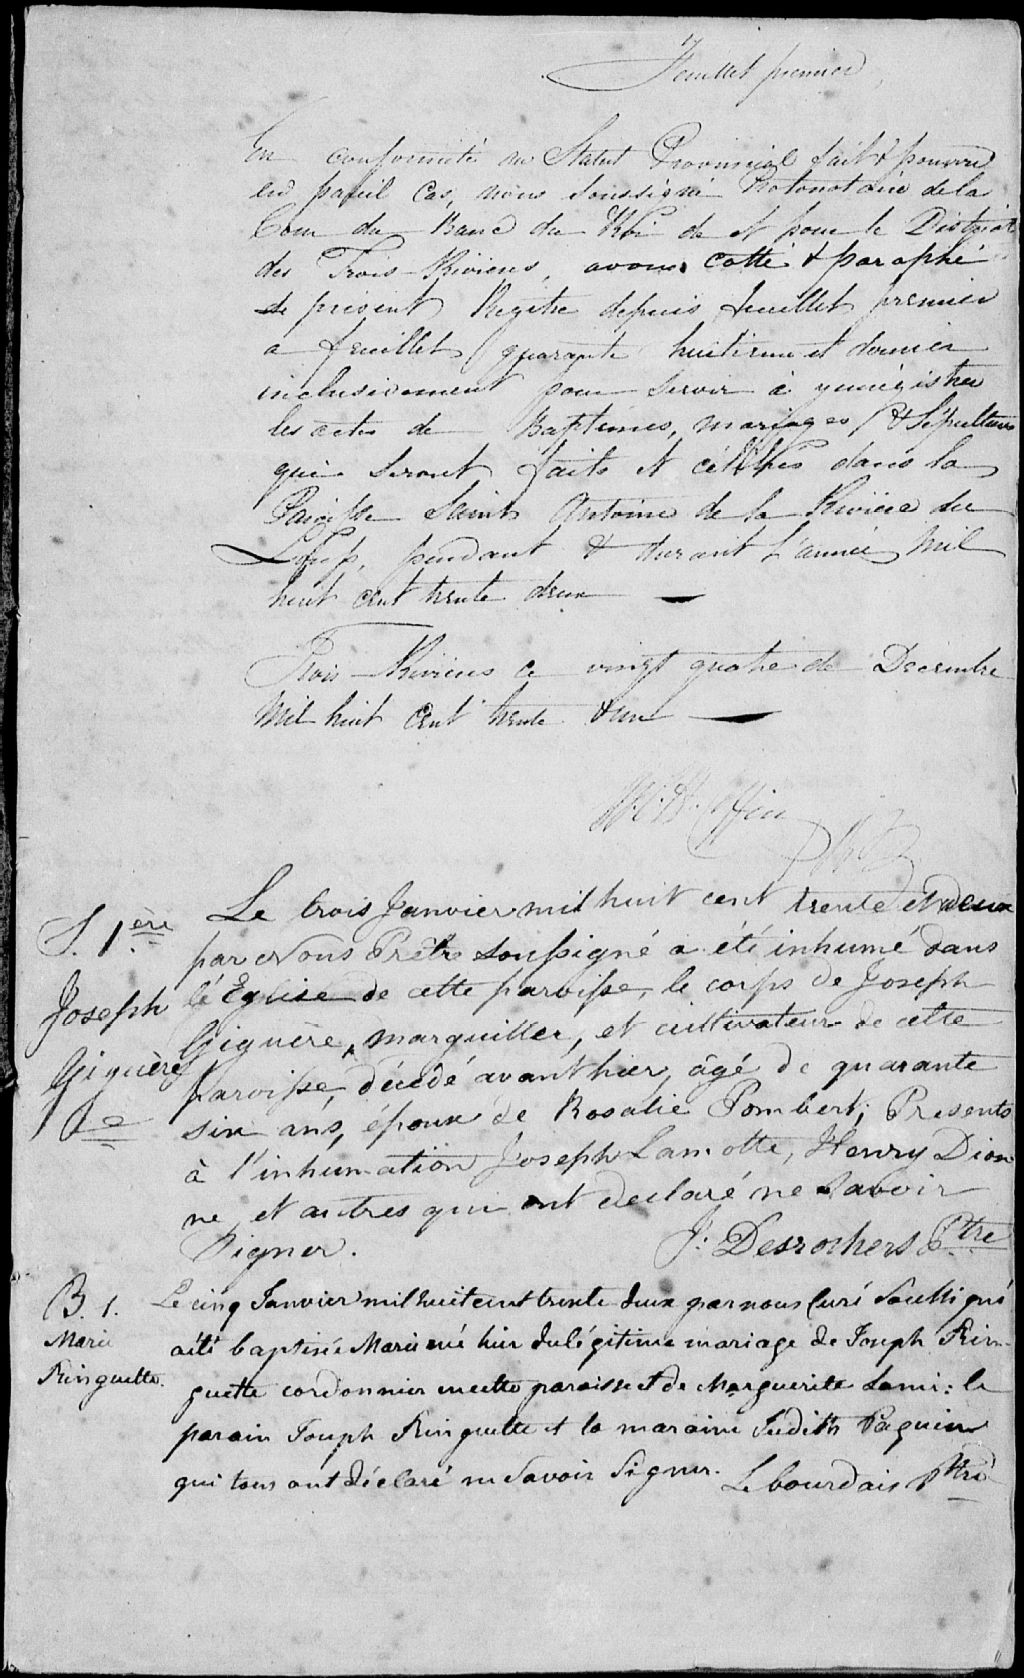 Feuillet premier
En conformité au Statut Provincial fait & pourvu
en pareil cas, nous soussigné Protonotaire de la
Cour du Banc du Roi de et pour le District
des Trois-Rivieres, avons cotté & paraphé
le présent Registre depuis feuillet premier
a feuillet quarante huitieme et dernier
inclusivement pour servir à y enrégistrer
les actes de Baptêmes, mariages, & Sépultures
qui seront faits et célébrés dans la
Paroisse Saint Antoine de la Riviere du
Loup, pendant & durant l'année Mil
huit cent trente deux
Trois-Rivieres ce vingt quatre de Decembre
Mil huit cent trente & un
W. H. Coffin
S. 1ère
Joseph
Giguère
Le trois Janvier mil huit cent trente et deux
par Nous Prêtre soussigné a été inhumé dans
l'Eglise de cette paroisse, le corps de Joseph
Giguère, marguiller, et cultivateur de cette
paroisse, décédé avanthier, âgé de quarante
six ans, époux de Rosalie Pombert; Presents
à l'inhumation Joseph Lamotte, Henry Dion
ne, et autres qui ont declaré ne savoir
Signer. J. Desrochers Ptre
B. 1.
Marie
Ringuette.
Le cinq Janvier mil huit cent trente deux par nous Curé Soussigné
a été baptisée Marie née hier du légitime mariage de Joseph Rin-
guette cordonnier en cette paroisse et de Marguerite Lami: le
parain Joseph Ringuette et la maraine Judith Paquin
qui tous ont déclaré ne savoir Signer. Lebourdais Ptre